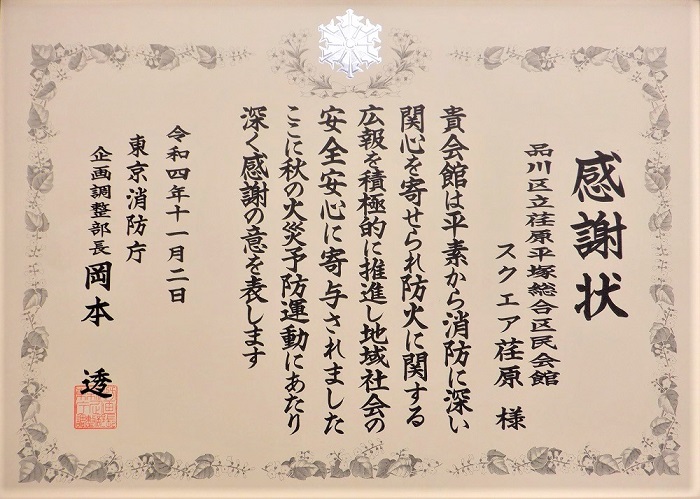 感謝状
品川区立荏原平塚総合区民会館
スクエア荏原 様
貴会館は平素から消防に深い
関心を寄せられ防火に関する
広報を積極的に推進し地域社会の
安全安心に寄与されました
ここに秋の火災予防運動にあたり
深く感謝の意を表します
令和四年十一月二日
東京消防庁
企画調整部長 岡本 透